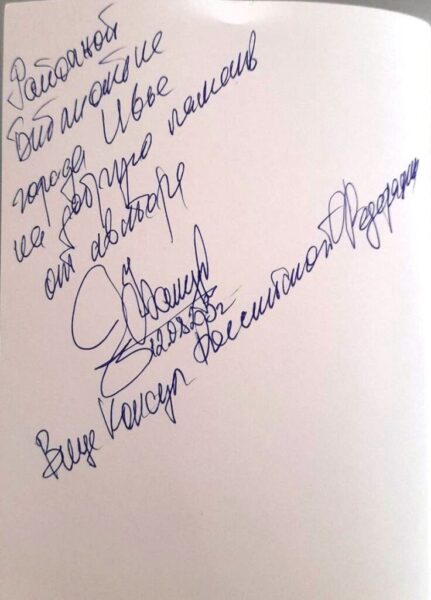 Районной
библиотеке
города Ивье
на добрую память
от автора
Вице Консул Российской Федерации